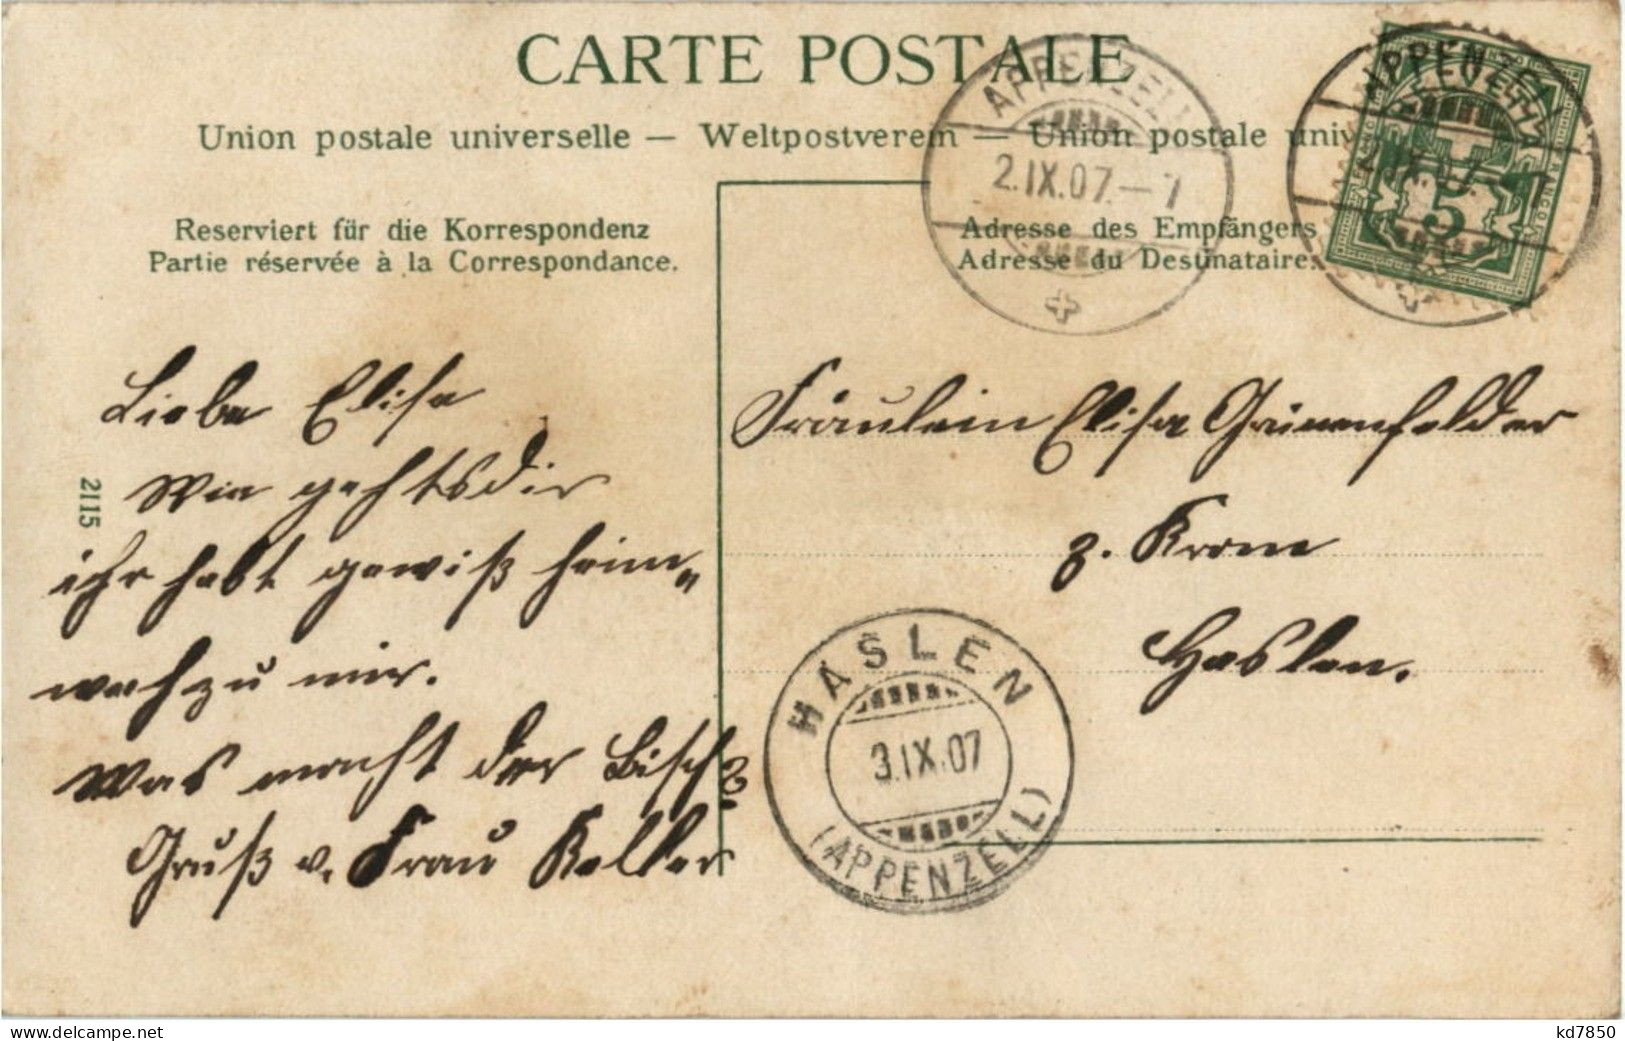 CARTE POSTALE
Union postale universelle — Weltpostverein — Union postale univ
Reserviert für die Korrespondenz
Partie réservée à la Correspondance.
Adresse des Empfängers
Adresse du Destinataire.
APPENZELL
2.IX.07.-7
APPENZELL
5
FRANCO
Liebe Elisa
Wie gehts dir
ihr habt gewiß heim„
weh zu mir.
Was macht der
Gruß v. Frau Keller
2115
Fräulein Elisa Grünenfelder
z. Krone
Haslen.
HASLEN
3.IX.07
(APPENZELL)
www.delcampe.net
kd7850